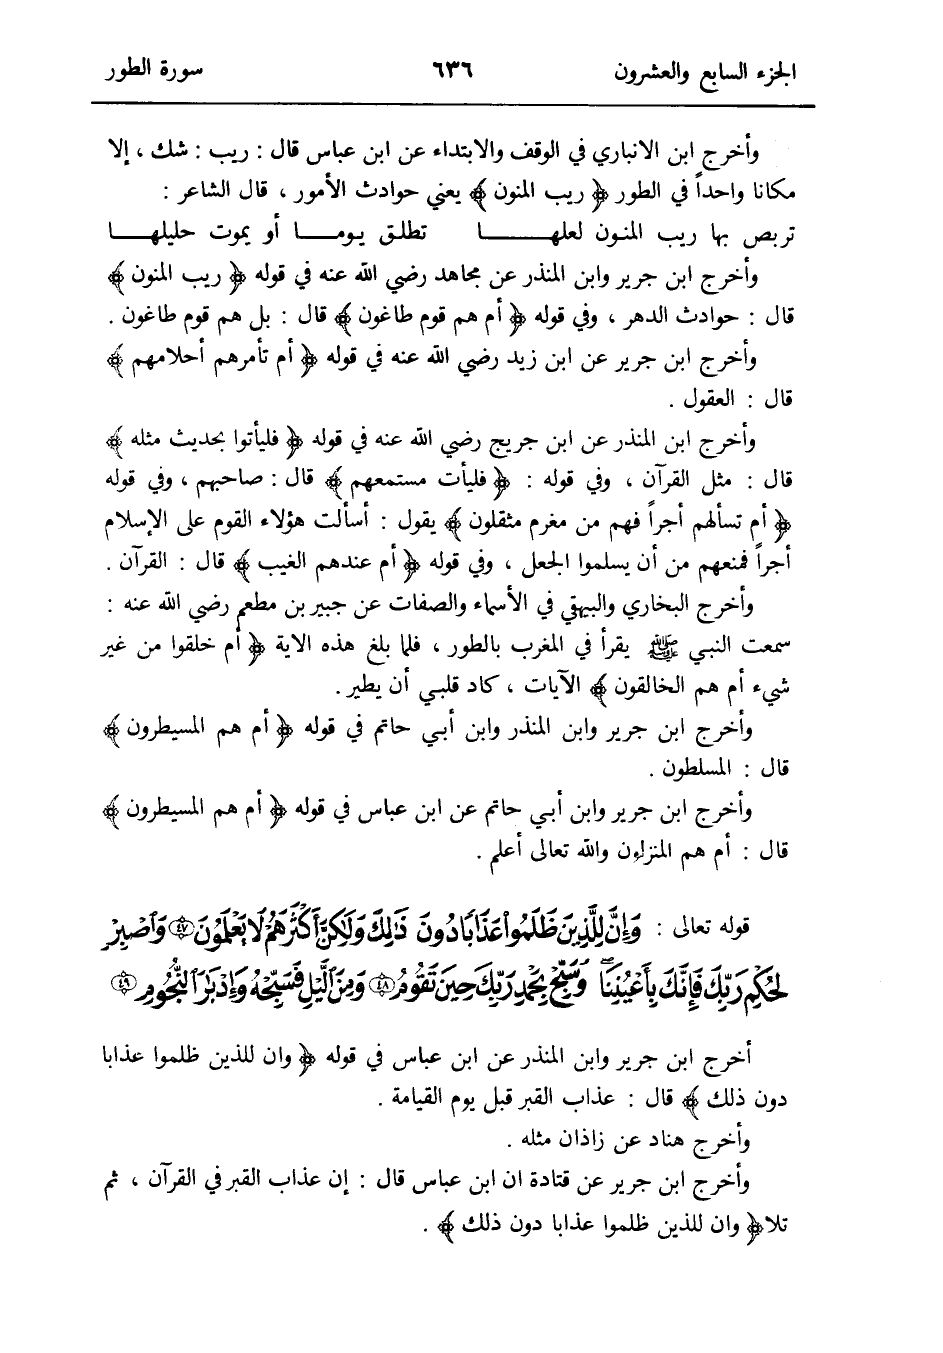 الجزء السابع والعشرون ٦٣٦ سورة الطور
وأخرج ابن الانباري في الوقف والابتداء عن ابن عباس قال : ريب : شك ، إلا
مكانا واحداً في الطور ﴿ ريب المنون ﴾ يعني حوادث الأمور ، قال الشاعر :
تربص بها ريب المنون لعلهـــــــا تطلق يومـــــا أو يموت حليلهـــــا
وأخرج ابن جرير وابن المنذر عن مجاهد رضي الله عنه في قوله ﴿ ريب المنون ﴾
قال : حوادث الدهر ، وفي قوله ﴿ أم هم قوم طاغون ﴾ قال : بل هم قوم طاغون .
وأخرج ابن جرير عن ابن زيد رضي الله عنه في قوله ﴿ أم تأمرهم أحلامهم ﴾
قال : العقول .
وأخرج ابن المنذر عن ابن جريج رضي الله عنه في قوله ﴿ فليأتوا بحديث مثله ﴾
قال : مثل القرآن ، وفي قوله : ﴿ فليأت مستمعهم ﴾ قال : صاحبهم ، وفي قوله
﴿ أم تسألهم أجراً فهم من مغرم مثقلون ﴾ يقول : أسألت هؤلاء القوم على الإسلام
أجراً فمنعهم من أن يسلموا الجعل ، وفي قوله ﴿ أم عندهم الغيب ﴾ قال : القرآن .
وأخرج البخاري والبيهقي في الأسماء والصفات عن جبير بن مطعم رضي الله عنه :
سمعت النبي ﷺ يقرأ في المغرب بالطور ، فلما بلغ هذه الاية ﴿ أم خلقوا من غير
شيء أم هم الخالقون ﴾ الآيات ، كاد قلبي أن يطير .
وأخرج ابن جرير وابن المنذر وابن أبي حاتم في قوله ﴿ أم هم المسيطرون ﴾
قال : المسلطون .
وأخرج ابن جرير وابن أبي حاتم عن ابن عباس في قوله ﴿ أم هم المسيطرون ﴾
قال : أم هم المنزلون والله تعالى أعلم .
قوله تعالى : وَإِنَّ لِلَّذِينَ ظَلَمُوا۟ عَذَابًا دُونَ ذَٰلِكَ وَلَٰكِنَّ أَكْثَرَهُمْ لَا يَعْلَمُونَ ﴿٤٧﴾ وَٱصْبِرْ
لِحُكْمِ رَبِّكَ فَإِنَّكَ بِأَعْيُنِنَا ۖ وَسَبِّحْ بِحَمْدِ رَبِّكَ حِينَ تَقُومُ ﴿٤٨﴾ وَمِنَ ٱلَّيْلِ فَسَبِّحْهُ وَإِدْبَٰرَ ٱلنُّجُومِ ﴿٤٩﴾
أخرج ابن جرير وابن المنذر عن ابن عباس في قوله ﴿ وان للذين ظلموا عذابا
دون ذلك ﴾ قال : عذاب القبر قبل يوم القيامة .
وأخرج هناد عن زاذان مثله .
وأخرج ابن جرير عن قتادة ان ابن عباس قال : إن عذاب القبر في القرآن ، ثم
تلا ﴿ وان للذين ظلموا عذابا دون ذلك ﴾ .